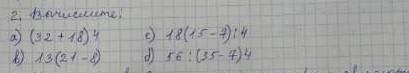 2. Вычислите:
а) (32 + 18) 4 с) 18(15 - 7) : 4
в) 13(21 - 8) d) 56 : (35 - 7) 4